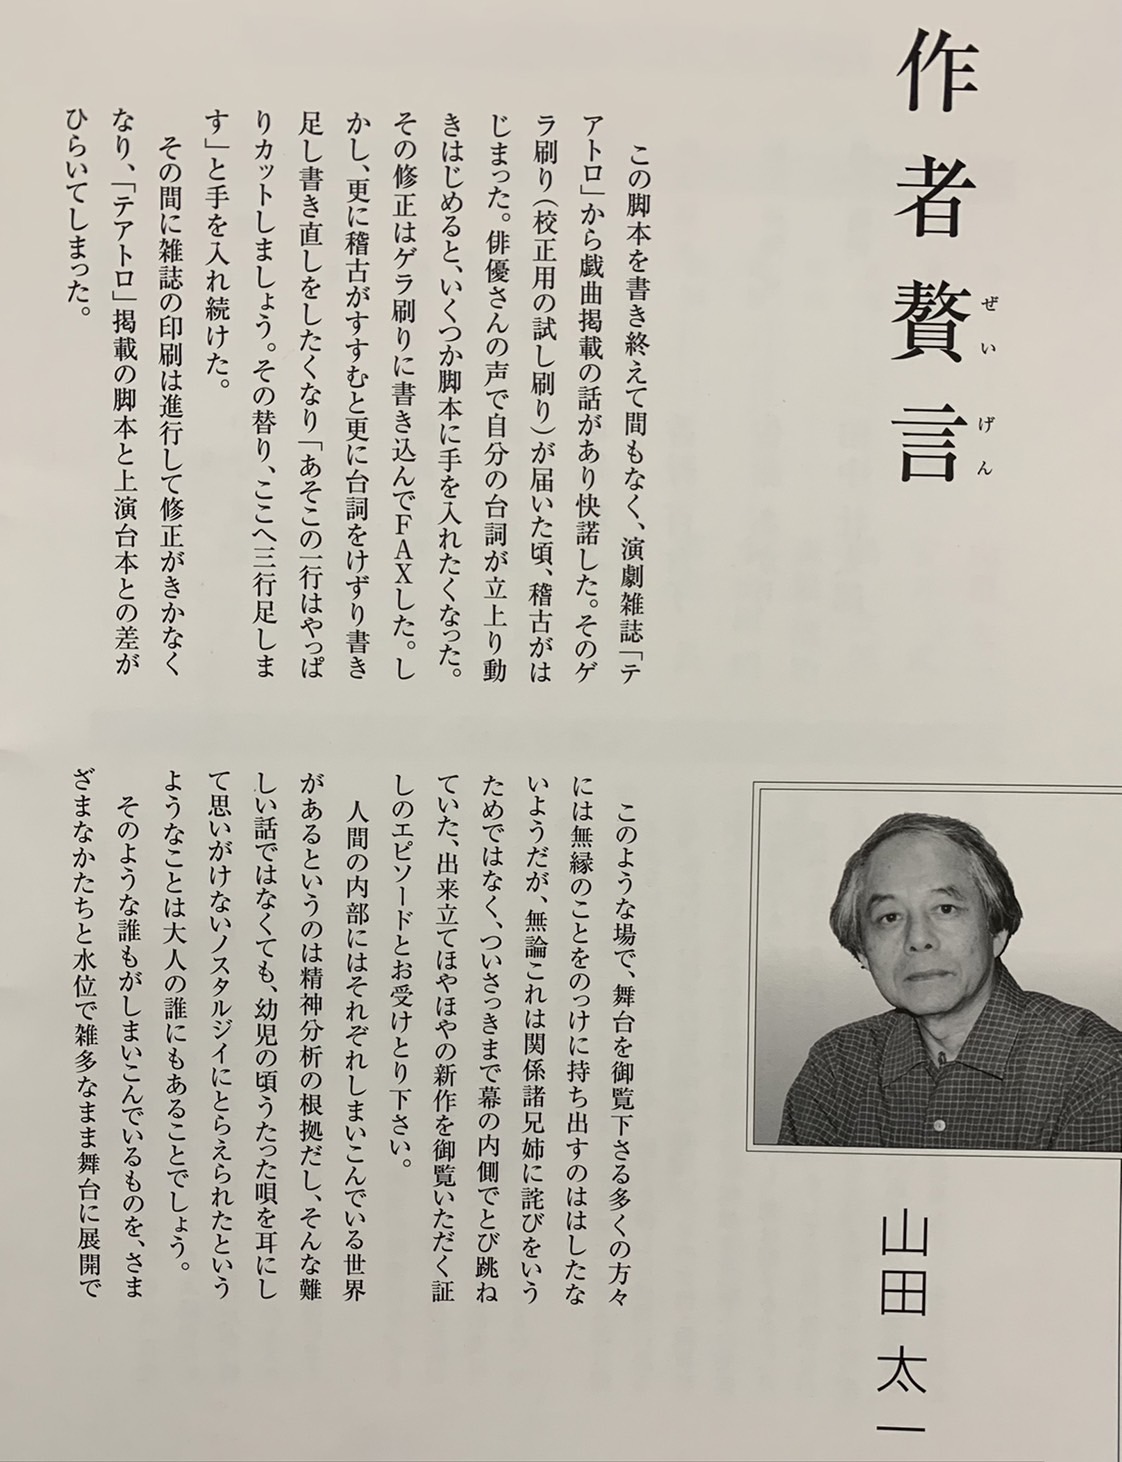 作者贅言
ぜいげん
山田太一
この脚本を書き終えて間もなく、演劇雑誌「テ
アトロ」から戯曲掲載の話があり快諾した。そのゲ
ラ刷り(校正用の試し刷り)が届いた頃、稽古がは
じまった。俳優さんの声で自分の台詞が立上り動
きはじめると、いくつか脚本に手を入れたくなった。
その修正はゲラ刷りに書き込んでFAXした。し
かし、更に稽古がすすむと更に台詞をけずり書き
足し書き直しをしたくなり「あそこの一行はやっぱ
りカットしましょう。その替り、ここへ三行足しま
す」と手を入れ続けた。
その間に雑誌の印刷は進行して修正がきかなく
なり、「テアトロ」掲載の脚本と上演台本との差が
ひらいてしまった。
このような場で、舞台を御覧下さる多くの方々
には無縁のことをのっけに持ち出すのははしたな
いようだが、無論これは関係諸兄姉に詫びをいう
ためではなく、ついさっきまで幕の内側でとび跳ね
ていた、出来立てほやほやの新作を御覧いただく証
しのエピソードとお受けとり下さい。
人間の内部にはそれぞれしまいこんでいる世界
があるというのは精神分析の根拠だし、そんな難
しい話ではなくても、幼児の頃うたった唄を耳にし
て思いがけないノスタルジイにとらえられたという
ようなことは大人の誰にもあることでしょう。
そのような誰もがしまいこんでいるものを、さま
ざまなかたちと水位で雑多なまま舞台に展開で